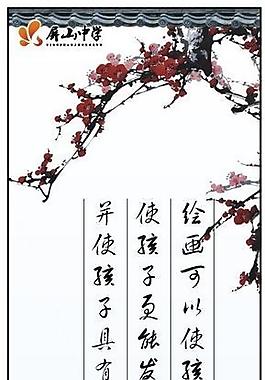 屏山中学
绘画可以使孩
使孩子更能发
并使孩子具有